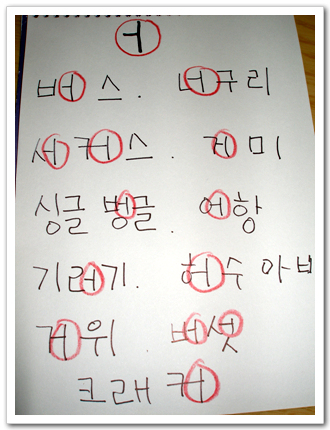 ㅓ
버스. 너구리
서커스. 거미
싱글벙글. 어항
기러기. 허수아비
거위. 버섯
크래커